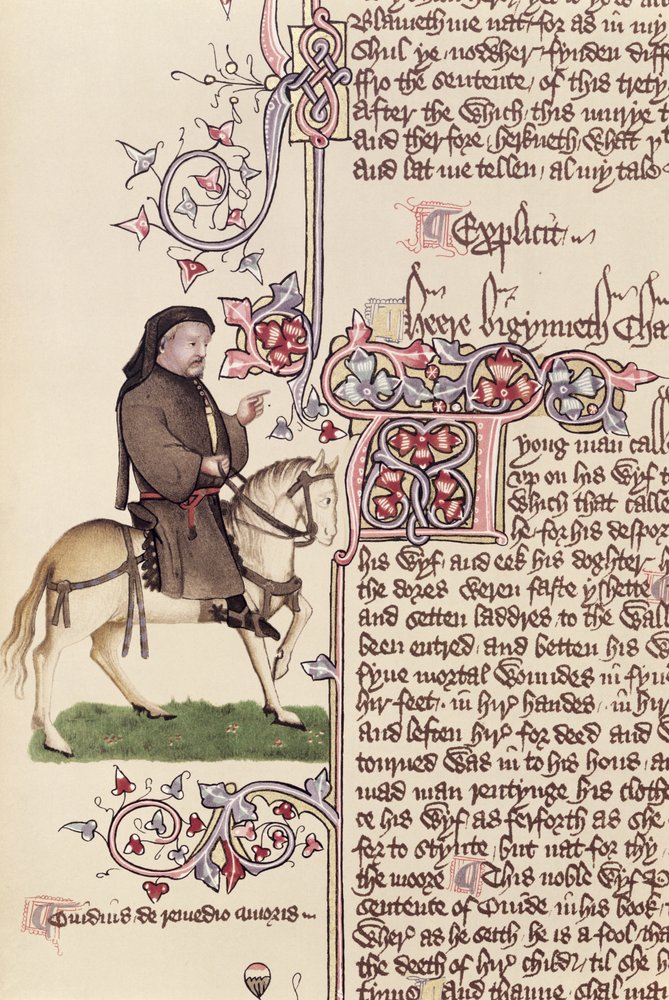 Blameth me nat / for as in my
Shul ye / nowher / fynden diff
ffro the sentence / of this trety
After the which / this murye t
And therfore / herkneth what y
And lat me tellen / al my tale
Explicit
Heere bigynneth Cha
yong man calle
vp on his wyf t
which that calle
he for his despor
his wyf / and eek his doghter h
the dores weren faste yshette
and setten laddres to the wall
been entred / and betten his w
fyue mortal woundes in fyu
hir feet / in hir handes / in hir
and leften hir for deed and w
tourned was in to his hous / a
mad man rentynge his clothe
ce his wyf as ferforth as she
for to stynte / but nat for thy
the moore This noble wyf P
sentence of Ouide in his book
wher as he seith he is a fool tha
the deeth of hir child til she h
tyme And thanne shal ma
Ouidius de remedio amoris